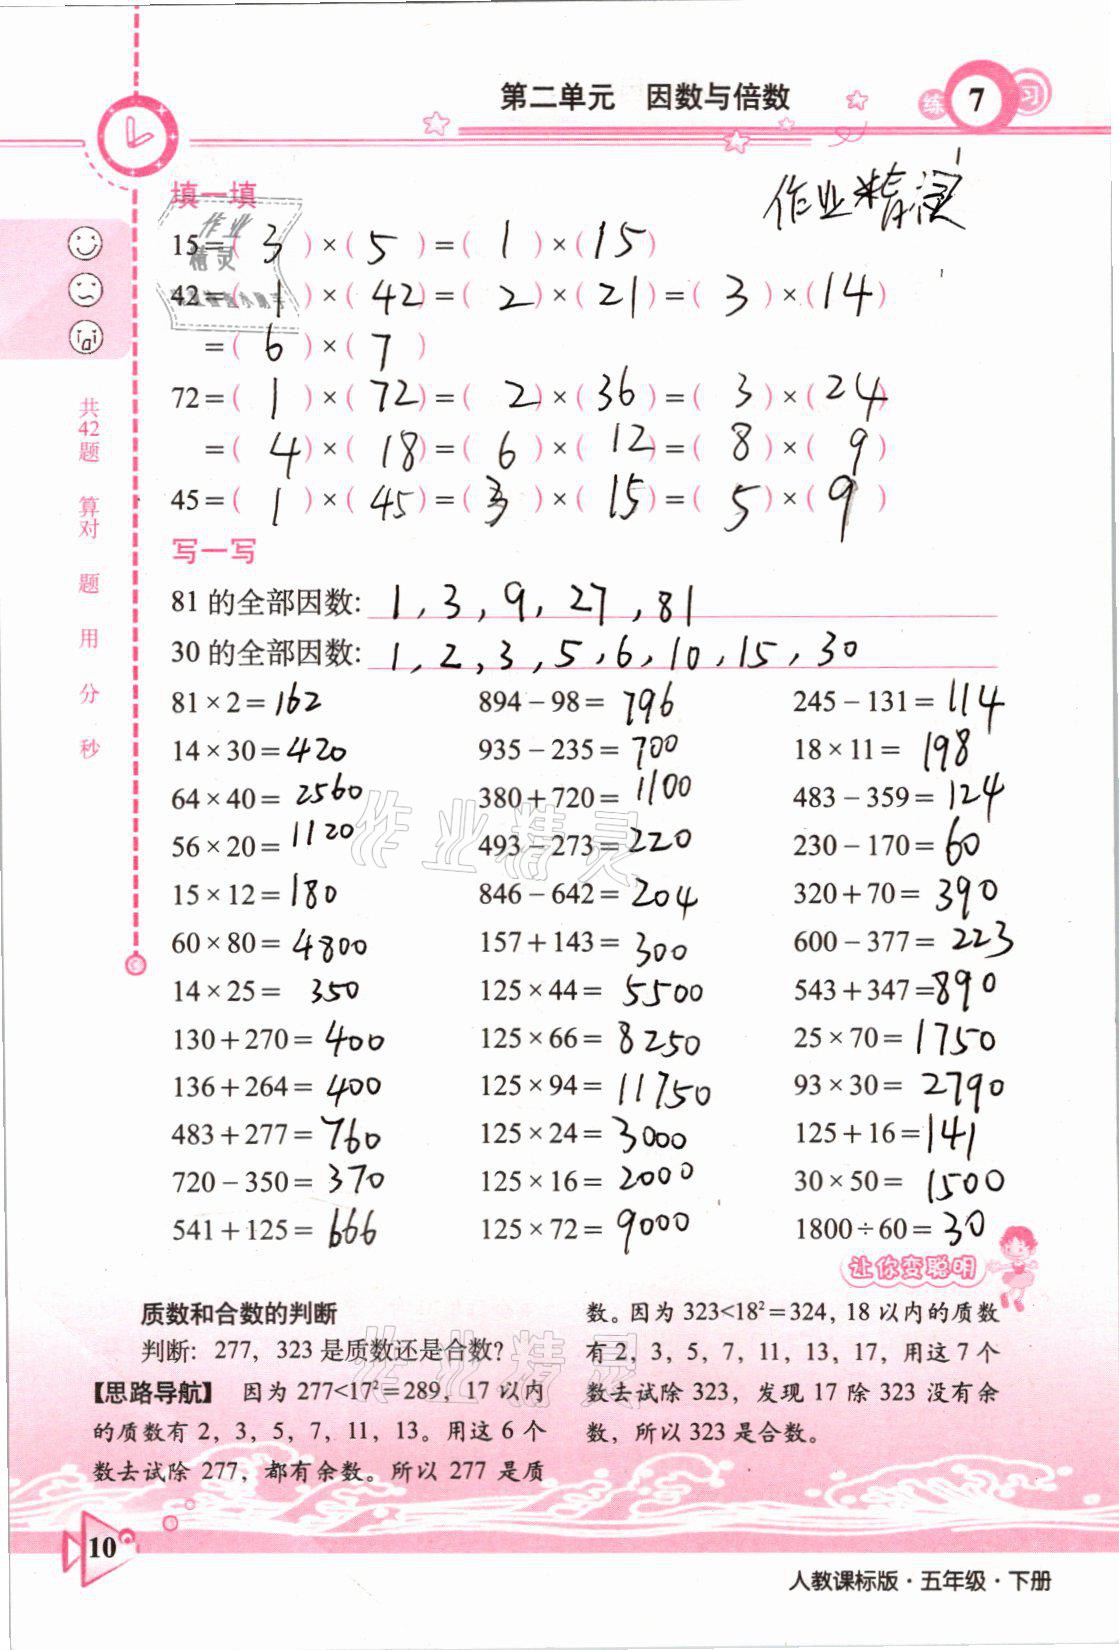 第二单元 因数与倍数
练 7 习
填一填
作业精灵
15=( 3 )×( 5 )=( 1 )×( 15 )
作业
精灵
42=( 1 )×( 42 )=( 2 )×( 21 )=( 3 )×( 14 )
=( 6 )×( 7 )
72=( 1 )×( 72 )=( 2 )×( 36 )=( 3 )×( 24 )
=( 4 )×( 18 )=( 6 )×( 12 )=( 8 )×( 9 )
45=( 1 )×( 45 )=( 3 )×( 15 )=( 5 )×( 9 )
写一写
81 的全部因数: 1, 3, 9, 27, 81
30 的全部因数: 1, 2, 3, 5, 6, 10, 15, 30
81×2=162 894-98=796 245-131=114
14×30=420 935-235=700 18×11=198
64×40=2560 380+720=1100 483-359=124
56×20=1120 493-273=220 230-170=60
15×12=180 846-642=204 320+70=390
60×80=4800 157+143=300 600-377=223
14×25=350 125×44=5500 543+347=890
130+270=400 125×66=8250 25×70=1750
136+264=400 125×94=11750 93×30=2790
483+277=760 125×24=3000 125+16=141
720-350=370 125×16=2000 30×50=1500
541+125=666 125×72=9000 1800÷60=30
共42题 算对 题 用 分 秒
作业精灵
让你变聪明
质数和合数的判断
判断：277，323 是质数还是合数？
【思路导航】 因为 277<17²=289，17 以内
的质数有 2，3，5，7，11，13。用这 6 个
数去试除 277，都有余数。所以 277 是质
数。因为 323<18²=324，18 以内的质数
有 2，3，5，7，11，13，17，用这 7 个
数去试除 323，发现 17 除 323 没有余
数，所以 323 是合数。
作业精灵
10
人教课标版·五年级·下册